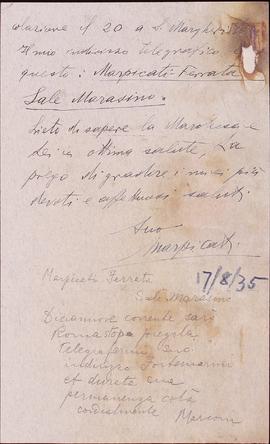 colazione il 20 a S. Margherita
Il mio indirizzo telegrafico è
questo: Marpicati-Ferrata
Sale Marasino.
Lieto di sapere la Marchesa e
Lei in ottima salute, La
prego di gradire i miei più
devoti e affettuosi saluti.
Suo
Marpicati
17/8/35
Marpicati Ferrata
Sale Marasino
Diciannove corrente sarò
Roma stop pregola
telegrafarmi suo
indirizzo
et durata sua
permanenza costà
cordialmente Marconi